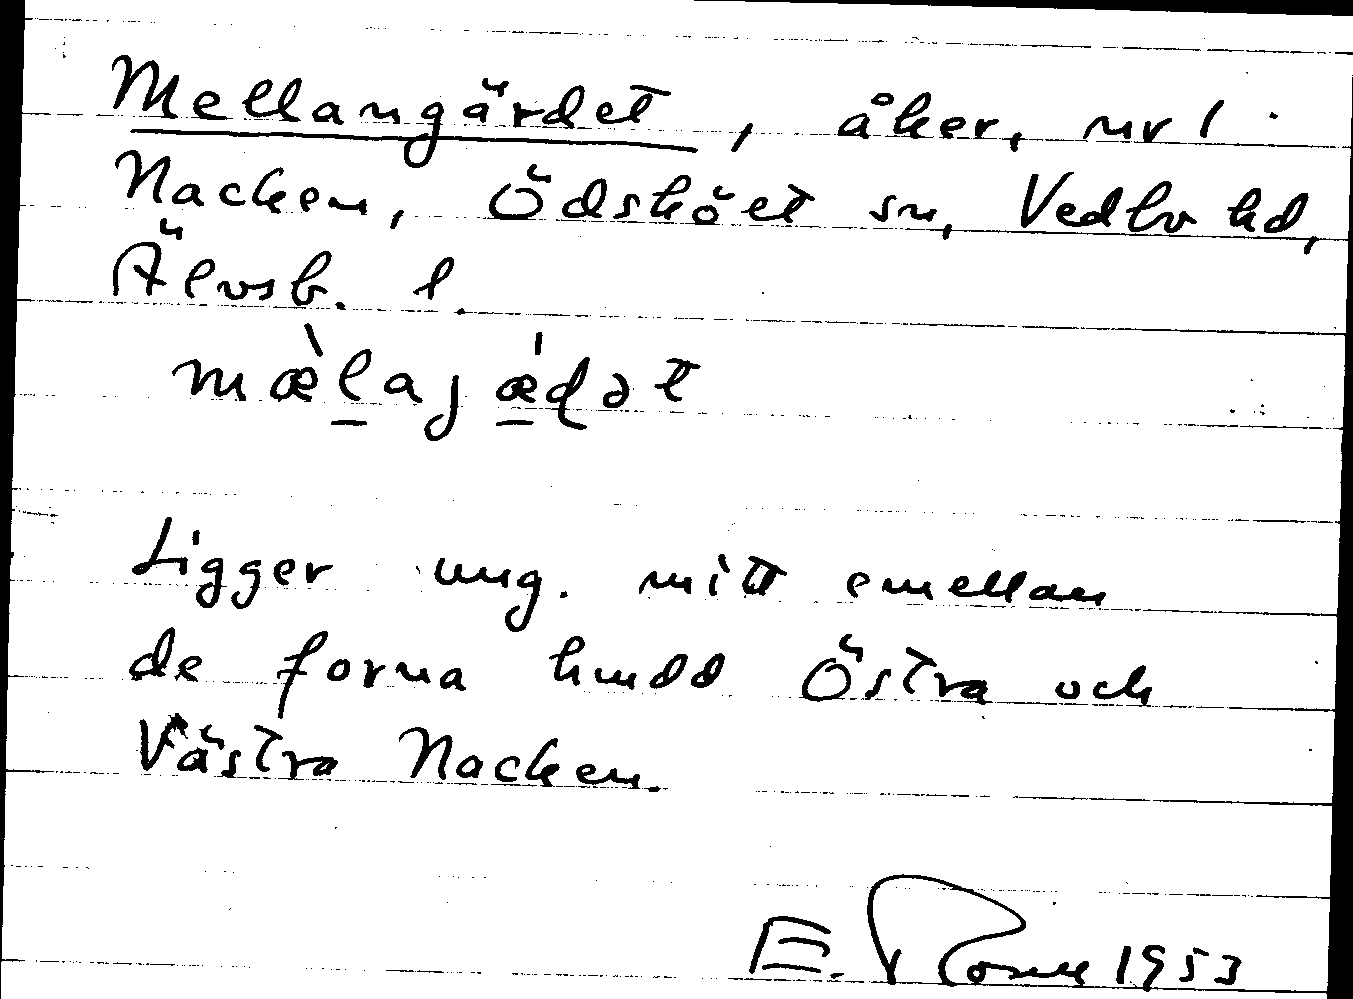 Mellangärdet, åker, nr 1
Nacken, Ödsköet sn, Vedbo hd,
Älvsb. l.
mæ̀lajǽdət
Ligger ung. mitt emellan
de forna hmdd Östra och
Västra Nacken.
E. 1953